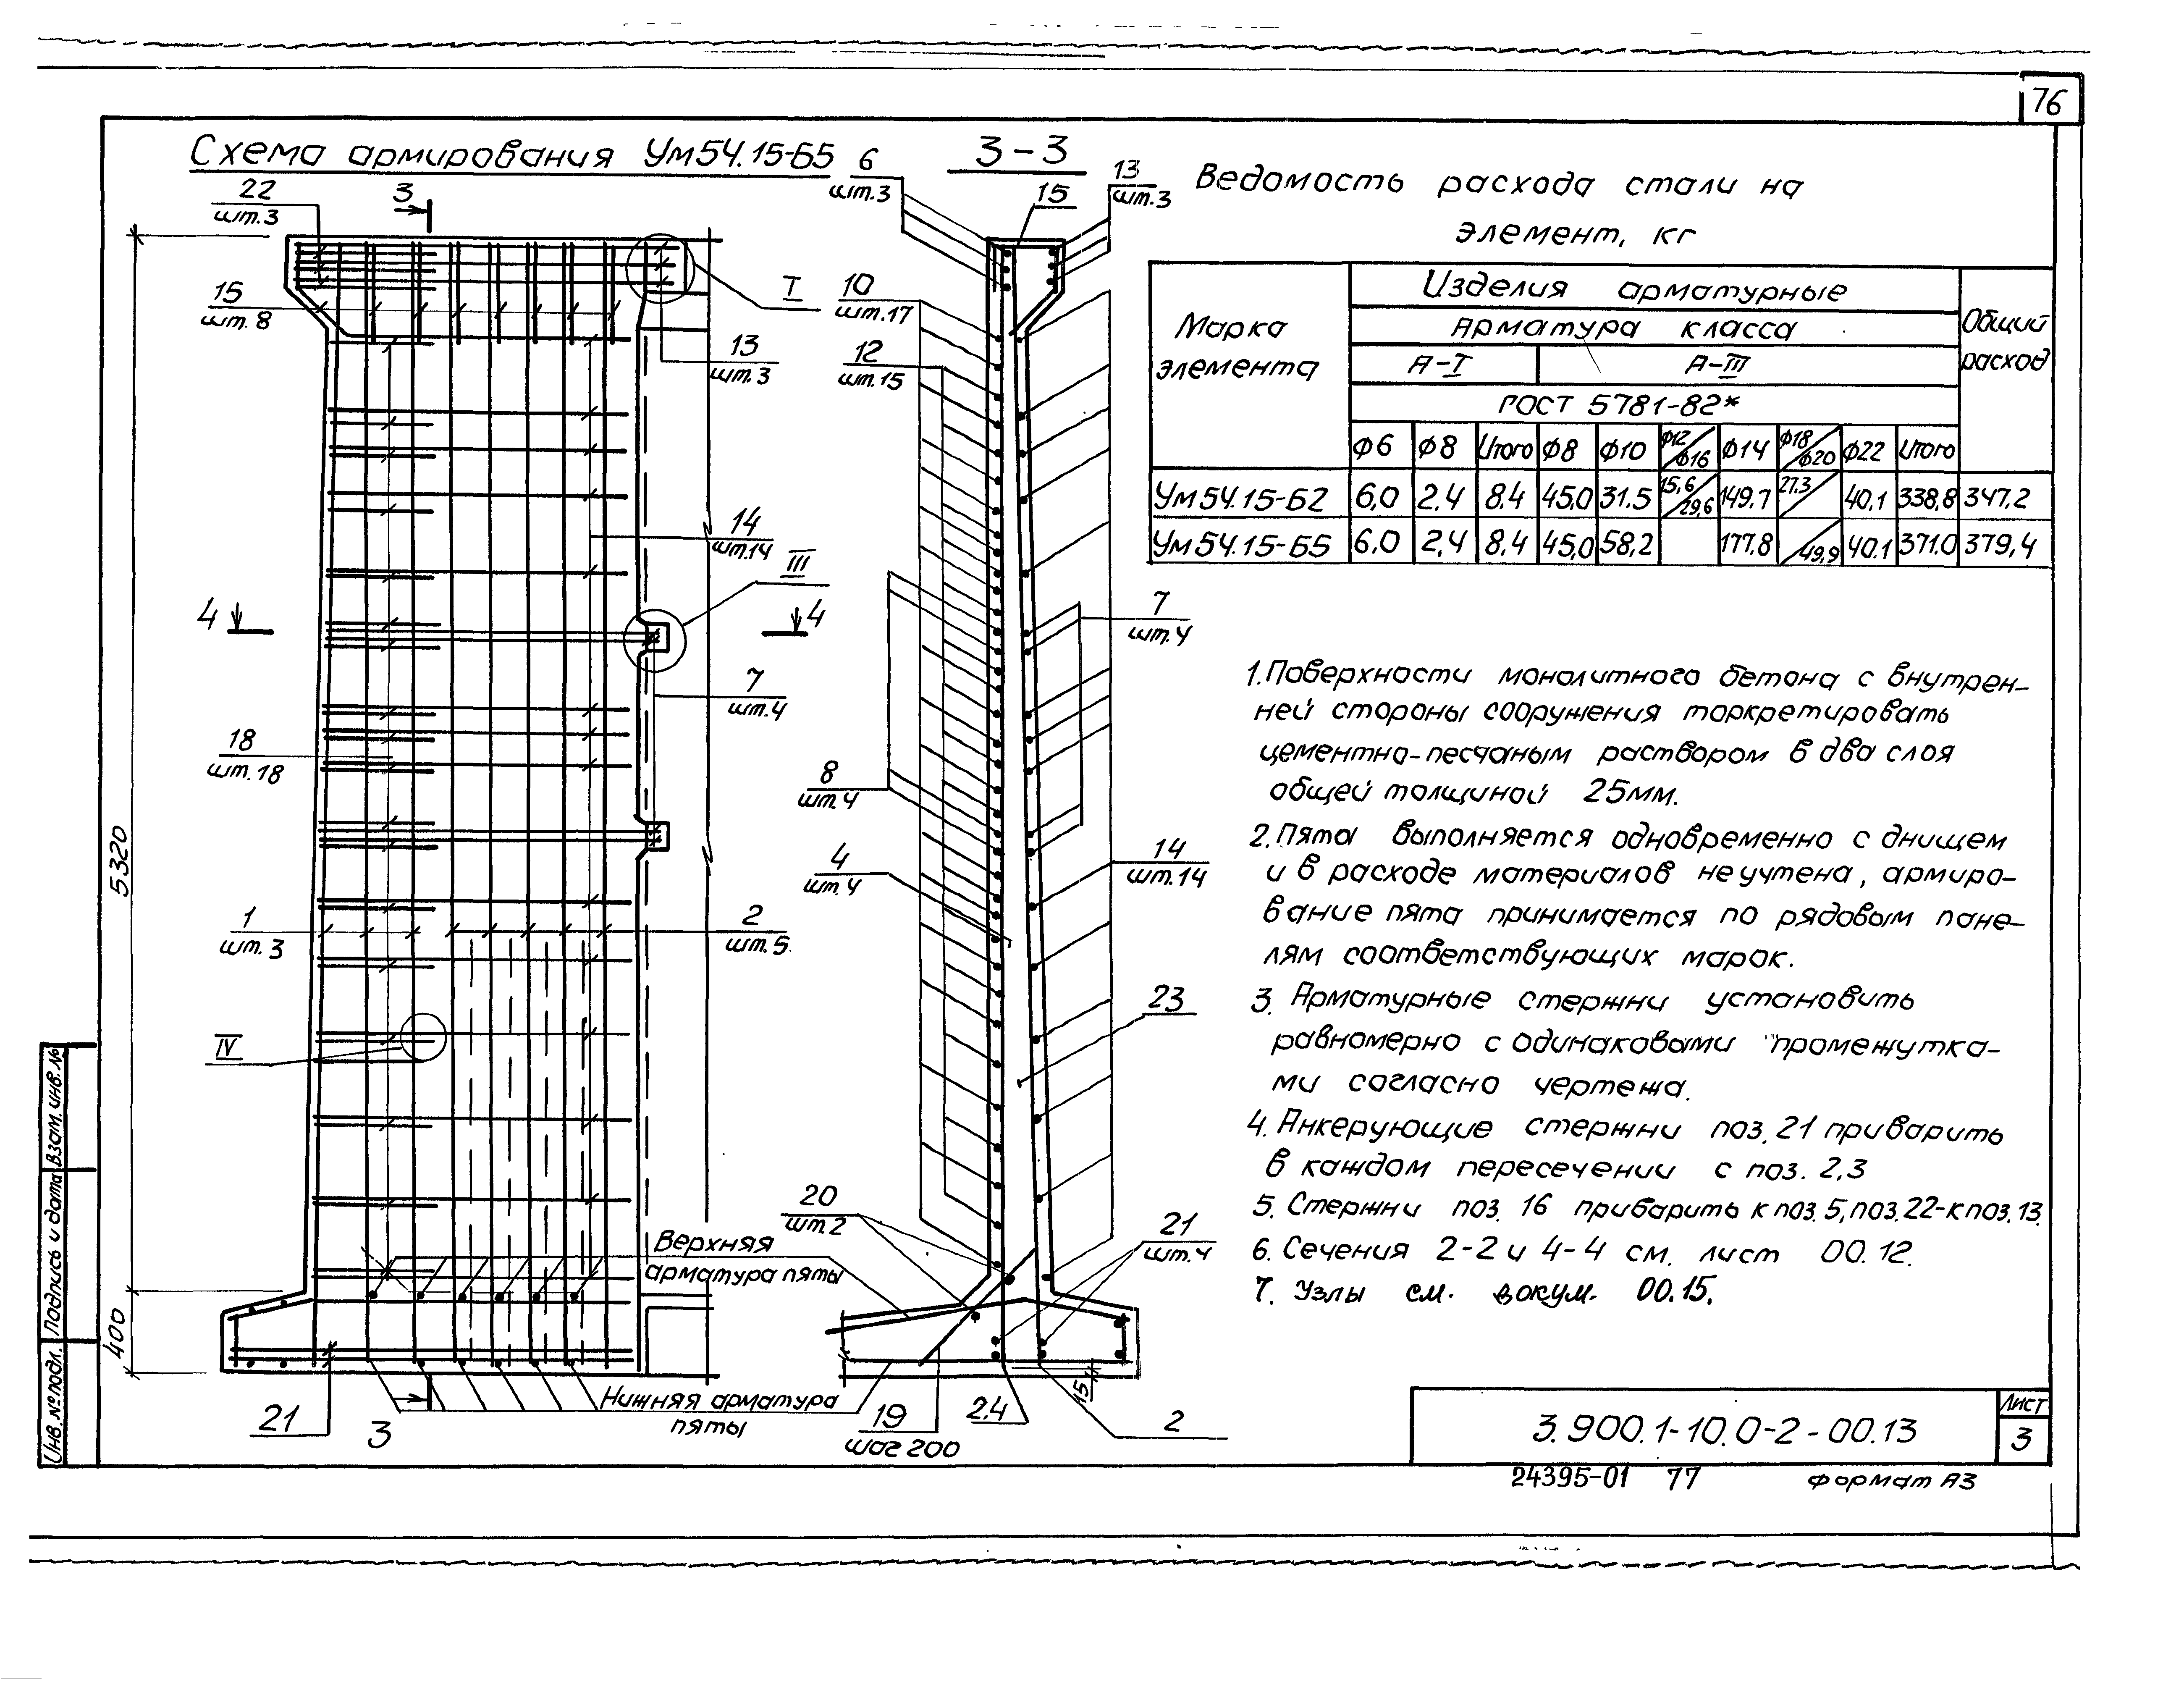 76
Схема армирования Ум54.15-Б5
3-3
22
шт.3
3
15
шт.8
I
13
шт.3
14
шт.14
III
4
4
7
шт.4
18
шт.18
5320
1
шт.3
2
шт.5.
IV
400
Верхняя
арматура пяты
Нижняя арматура
пяты
21
3
6
шт.3
15
13
шт.3
10
шт.17
12
шт.15
7
шт.4
8
шт.4
4
шт.4
14
шт.14
23
20
шт.2
21
шт.4
19
шаг 200
2,4
15
2
Ведомость расхода стали на
элемент, кг
Марка
элемента
Изделия арматурные
Общий
расход
Арматура класса
А-I
А-III
ГОСТ 5781-82*
ф6 ф8 Итого ф8 ф10 ф12/ф16 ф14 ф18/ф20 ф22 Итого
Ум54.15-Б2 6,0 2.4 8.4 45,0 31.5 15,6/29,6 149.7 27.3 40.1 338,8 347.2
Ум54.15-Б5 6,0 2,4 8,4 45,0 58,2 177.8 49,9 40.1 371.0 379,4
1. Поверхности монолитного бетона с внутрен-
ней стороны сооружения торкретировать
цементно-песчаным раствором в два слоя
общей толщиной 25мм.
2. Пята выполняется одновременно с днищем
и в расходе материалов не учтена, армиро-
вание пята принимается по рядовым пане-
лям соответствующих марок.
3. Арматурные стержни установить
равномерно с одинаковыми промежутка-
ми согласно чертежа.
4. Анкерующие стержни поз. 21 приварить
в каждом пересечении с поз. 2,3
5. Стержни поз. 16 приварить к поз. 5, поз. 22-к поз. 13.
6. Сечения 2-2 и 4-4 см. лист 00.12.
7. Узлы см. докум. 00.15.
Инв. № подл. Подпись и дата Взам. инв. №
3.900.1-10.0-2-00.13
Лист
3
24395-01 77 Формат А3